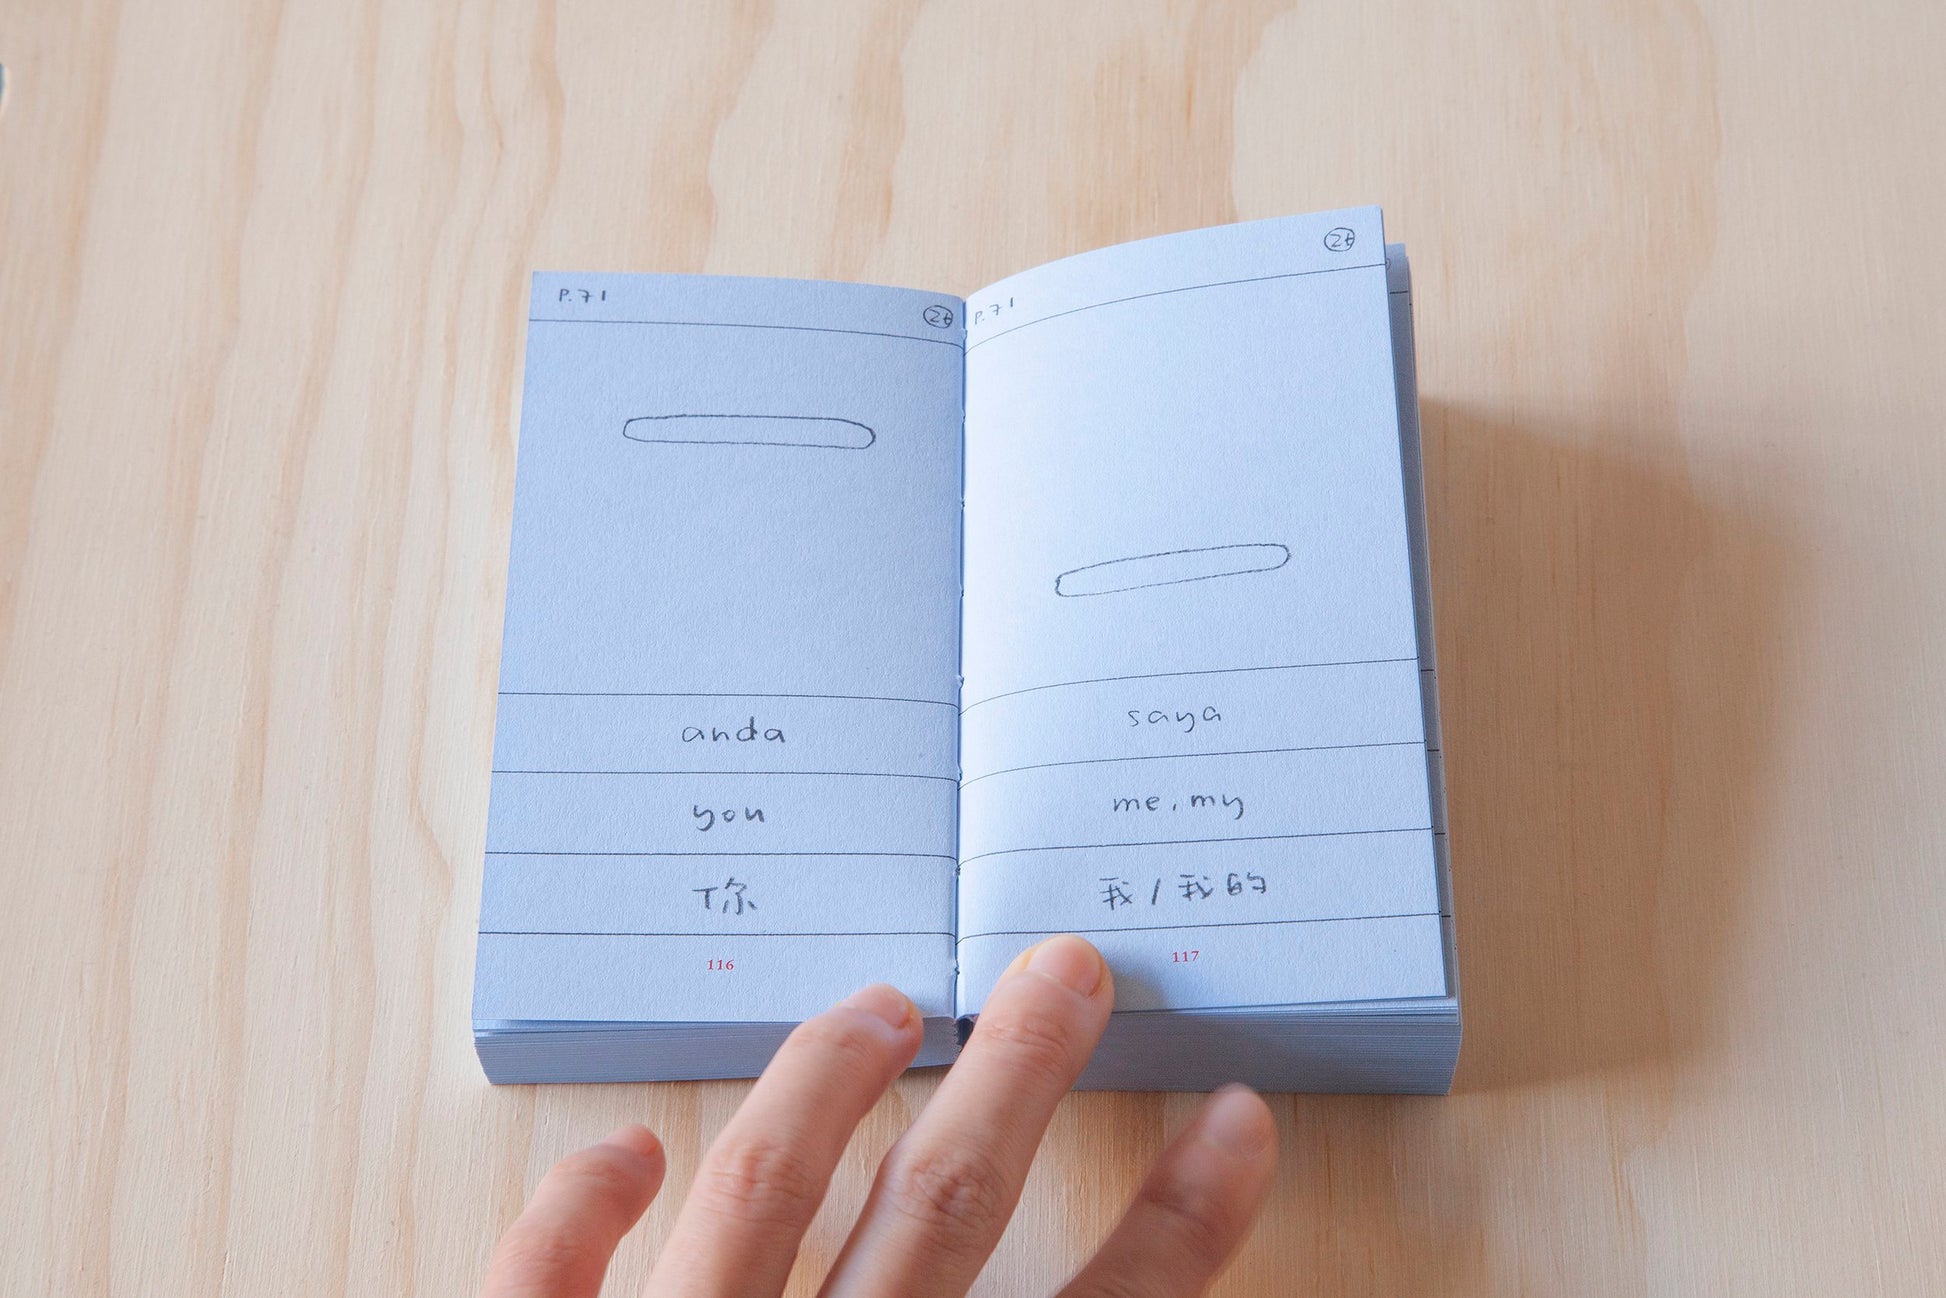 P.71
26
anda
you
你
116
P.71
26
saya
me, my
我 / 我的
117